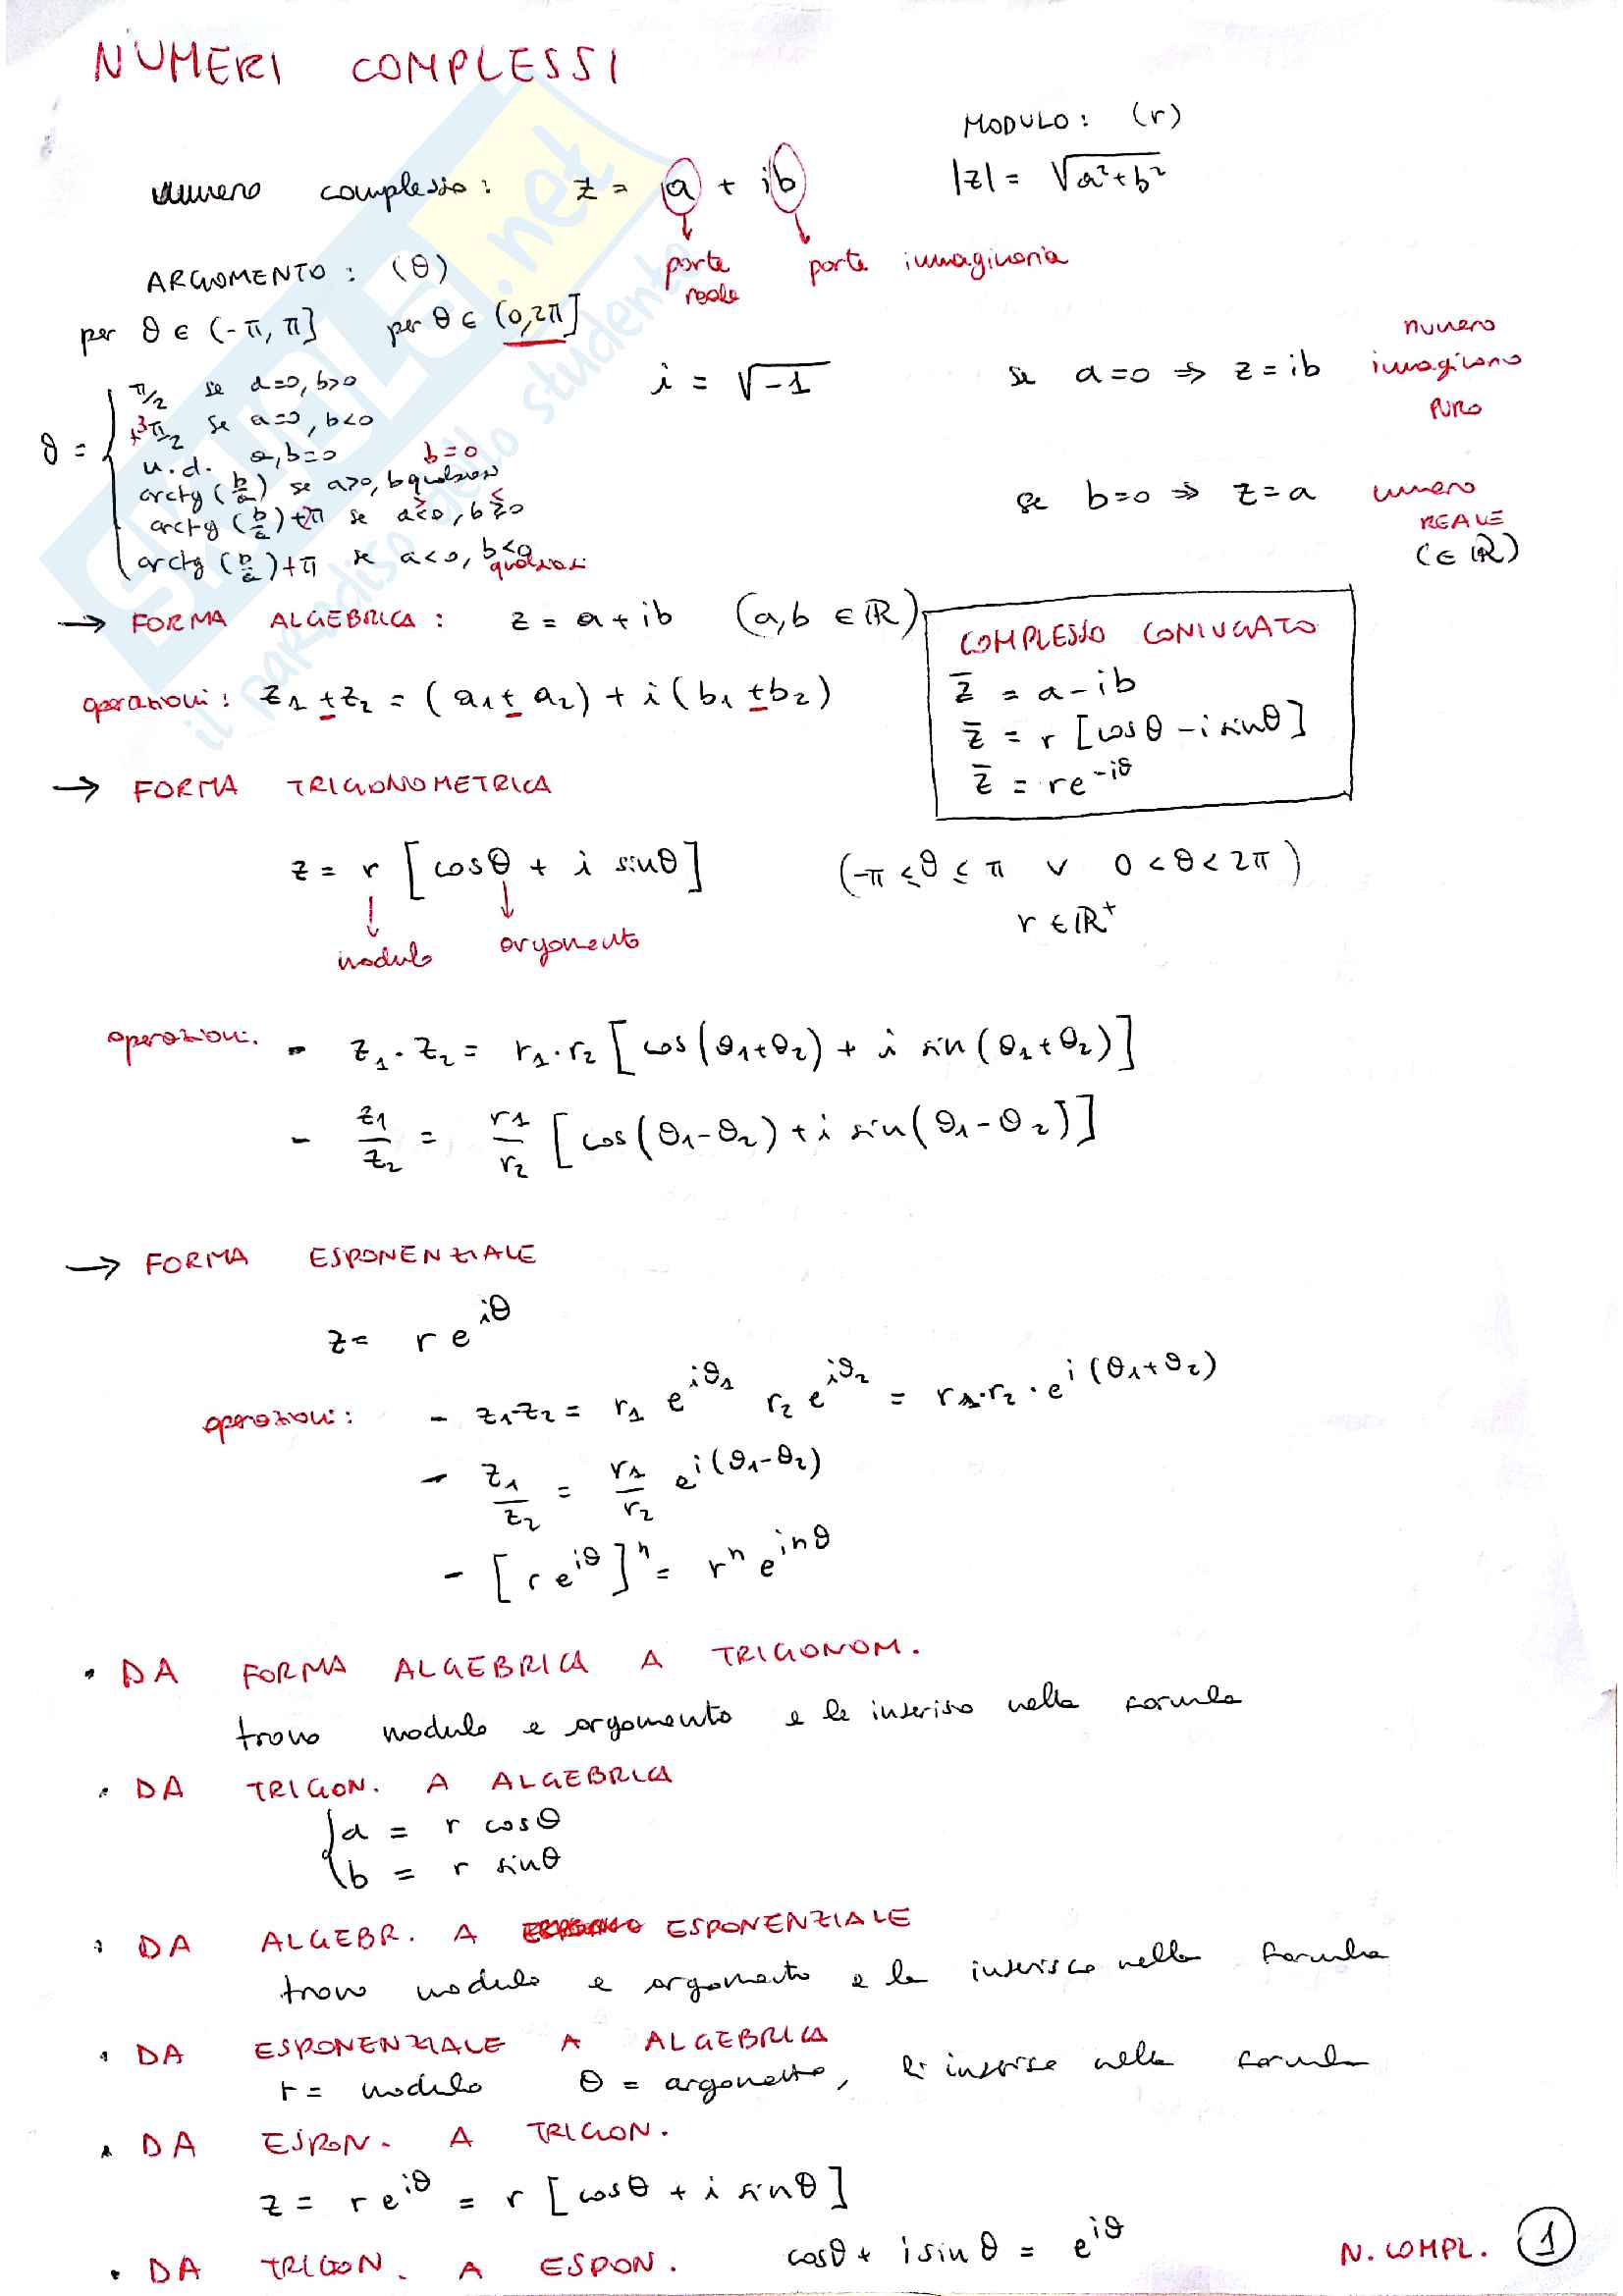 NUMERI COMPLESSI
MODULO: (r)
numero complesso: z = a + ib |z| = √a²+b²
parte reale parte immaginaria
ARGOMENTO: (θ)
per θ ∈ (-π, π] per θ ∈ (0,2π]
i = √-1
se a=0 ⇒ z=ib numero immaginario puro
θ = {
π/2 se a=0, b>0
+3π/2 se a=0, b<0
n.d. a,b=0 b=0
arctg (b/a) se a>0, b qualsiasi
arctg (b/a)+2π se
arctg (b/a)+π se a<0, b<0 qualsiasi
se b=0 ⇒ z=a numero REALE (∈ ℝ)
→ FORMA ALGEBRICA: z = a+ib (a,b ∈ ℝ)
operazioni: z₁ ± z₂ = (a₁ ± a₂) + i(b₁ ± b₂)
COMPLESSO CONIUGATO
z̄ = a-ib
z̄ = r [cosθ - i sinθ]
z̄ = re^-iθ
→ FORMA TRIGONOMETRICA
z = r [cosθ + i sinθ] (-π ≤ θ ≤ π ∨ 0 < θ < 2π)
modulo argomento r ∈ ℝ⁺
operazioni. - z₁·z₂ = r₁·r₂ [cos(θ₁+θ₂) + i sin(θ₁+θ₂)]
- z₁/z₂ = r₁/r₂ [cos(θ₁-θ₂) + i sin(θ₁-θ₂)]
→ FORMA ESPONENZIALE
z = r e^iθ
operazioni: - z₁·z₂ = r₁ e^iθ₁ r₂ e^iθ₂ = r₁·r₂·e^i(θ₁+θ₂)
- z₁/z₂ = r₁/r₂ e^i(θ₁-θ₂)
- [r e^iθ]^n = r^n e^inθ
• DA FORMA ALGEBRICA A TRIGONOM.
trovo modulo e argomento e le inserisco nella formula
• DA TRIGON. A ALGEBRICA
{ a = r cosθ
b = r sinθ
• DA ALGEBR. A ESPONENZIALE
trovo modulo e argomento e le inserisco nella formula
• DA ESPONENZIALE A ALGEBRICA
r = modulo θ = argomento, li inserisco nella formula
• DA ESPON. A TRIGON.
z = re^iθ = r [cosθ + i sinθ]
• DA TRIGON. A ESPON. cosθ + i sinθ = e^iθ
N. COMPL. 1
SKUOLA.net
il paradiso dello studente